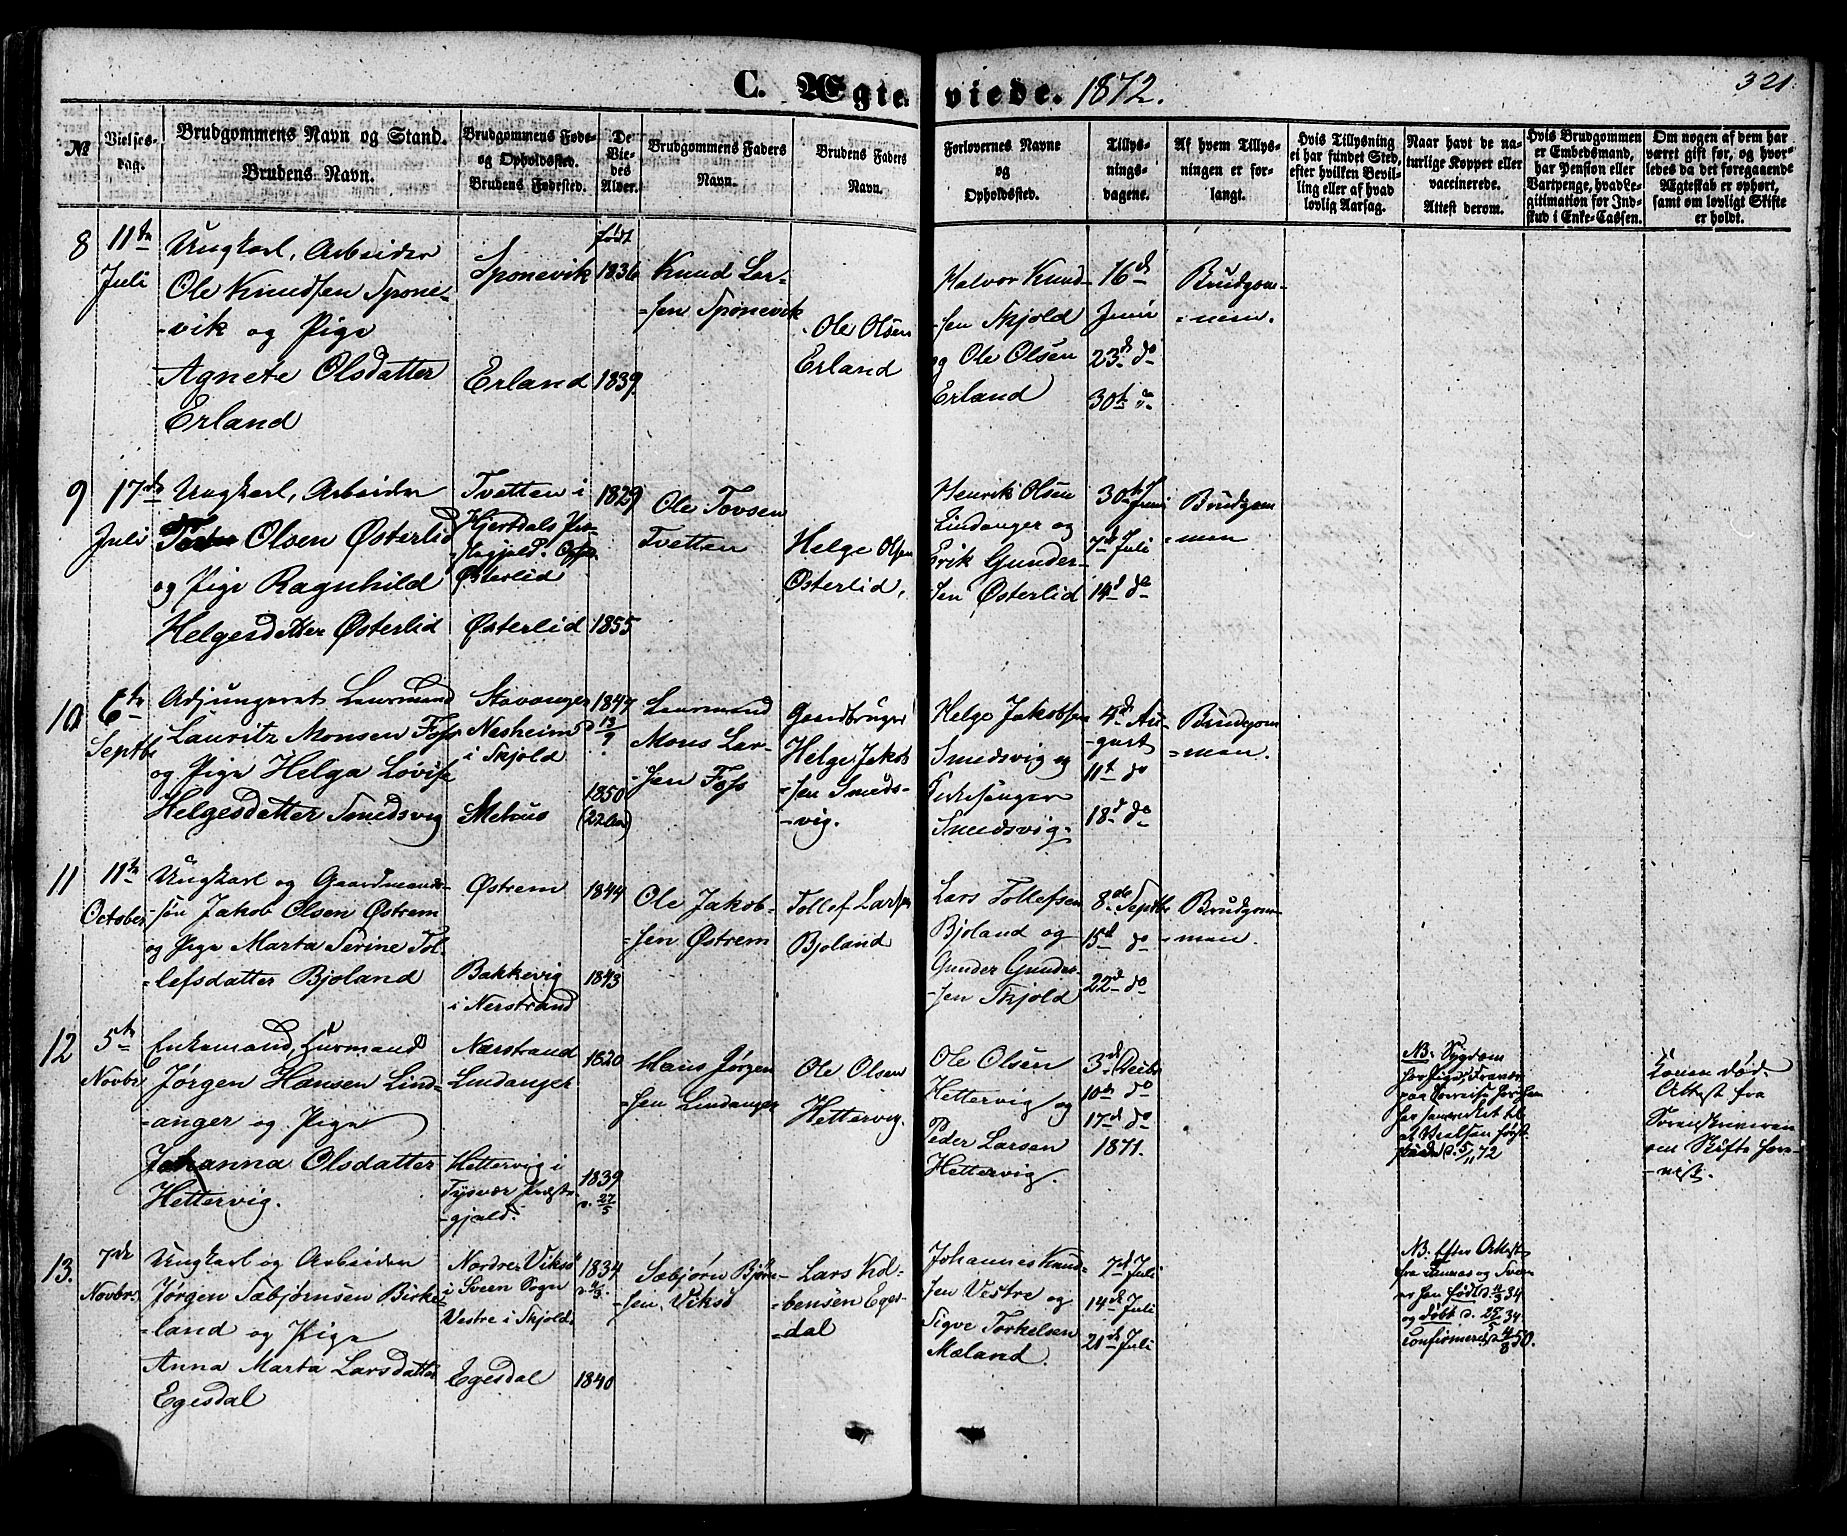 C. Ægteviede. 1872.
321.
№
Vielses-
dag.
Brudgommens Navn og Stand.
Brudens Navn.
Brudgommens Føde-
og Opholdssted.
Brudens Fødested.
De
Vie-
des
Alder.
Brudgommens Faders
Navn.
Brudens Faders
Navn.
Forlovernes Navne
og
Opholdssted.
Tillys-
nings-
dagene.
Af hvem Tillys-
ningen er for-
langt.
Hvis Tillysning
ei har fundet Sted,
efter hvilken Bevil-
ling eller af hvad
lovlig Aarsag.
Naar havt de na-
turlige Kopper eller
vaccinerede.
Attest derom.
Hvis Brudgommen
er Embedsmand,
har Pension eller
Vartpenge, hvad Le-
gitimation for Ind-
skud i Enke-Cassen.
Om nogen af dem har
været gift før, og hvor-
ledes da det foregaaende
Ægteskab er ophørt,
samt om lovligt Skifte
er holdt.
8
11te
Juli
Ungkarl, Arbeider
Ole Knudsen Spone-
-vik og Pige
Agnete Olsdatter
Erland
Sponevik
Erland
født
1836
1839.
Knud Lar-
-sen Sponevik
Ole Olsen
Erland
Halvor Knud-
-sen Skjold
og Ole Olsen
Erland
16de
Juni
23de do
30te do
Brudgom-
-men.
9
17de
Juli
Ungkarl, Arbeider
Olsen Østerlid
og Pige Ragnhild
Helgesdatter Østerlid
Tvetten i
Hjertdals Pr-
Østerlid
Østerlid
1829
1855
Ole Tovsen
Tvetten
Helge Olsen
Østerlid,
Henrik Olsen
Lindanger og
Erik Gunder-
sen Østerlid
30te Juni
7de Juli
14de do
Brudgom
-men
10
6te
Septbr
Adjungeret Lensmand
Lauritz Monsen Foss
og Pige Helga Lovise
Helgesdatter Smedsvig
Stavanger
Nesheim
i Skjold
Mehus
1847
13/9
1850
(22 Aar)
Lensmand
Mons Lar-
-sen Foss
Gaardbruger
Helge Jakob
-sen Smeds-
-vig.
Helge Jakobsen
Smedsvig og
Kirkesanger
Smedsvig.
4de Au-
-gust
11te do
18de do
Brudgom
-men.
11
11te
October
Ungkarl og Gaardmands-
-søn Jakob Olsen Østrem
og Pige Marta Serine Tol-
-lefsdatter Bjoland
Østrem
Bakkevig
i Nerstrand
1844
1843
Ole Jakob-
-sen Østrem
Tollef Larsen
Bjoland
Lars Tollefsen
Bjoland og
Gunder Gunder-
-sen Skjold
8de Septbr
15de do
22de do
Brudgom-
-men.
12
5te
Novbr
Enkemand, Huusmand
Jørgen Hansen Lind-
-anger og Pige
Johanna Olsdatter
Hettervig.
Nærstrand
Lindanger
Hettervig i
Tysvær Præste-
-gjæld.
1820
1839
d. 27/5
Hans Jørgen
-sen Lindanger
Ole Olsen
Hettervig.
Ole Olsen
Hettervig og
Peder Larsen
Hettervig.
3de Decbr
10de do
17de do
1871.
NB. Sygdom
hos Pigen,
at Vielsen først
d. 5/11 72
Konen død.
Attest fra
Sorenskriveren
om Skifte fore-
-vist.
13.
7de
Novbr.
Ungkarl og Arbeider
Jørgen Sæbjørnsen Birke-
-land og Pige
Anna Marta Larsdatter
Egesdal
Nordre Viksø
i Sveen Sogn
Vestre i Skjold.
Egesdal
1834
d. 11/3.
1840
Sæbjørn Bjørn-
-sen, Viksø
Lars Kol-
-bensen Eges-
-dal
Johannes Knud-
-sen Vestre og
Sigve Torkelsen
Mæland.
7de Juli
14de Juli
21de Juli
NB. Efter Attest
fra Finnaas og Sveen
er han født d. 11/3 34
og døbt d. 25/5 34
confirmeret d. 4/8 50.